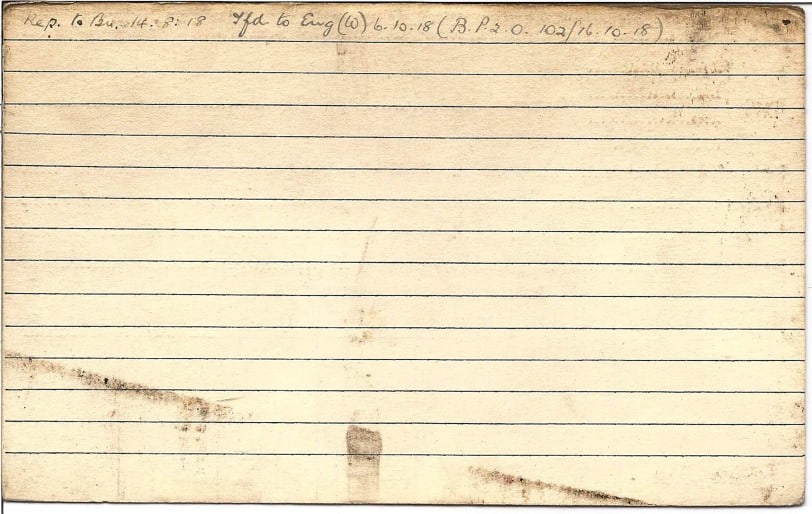 Rep. to Bn. 14.8.18 Tfd to Eng (W) 6.10.18 (B.P.2.O. 102/16.10.18)